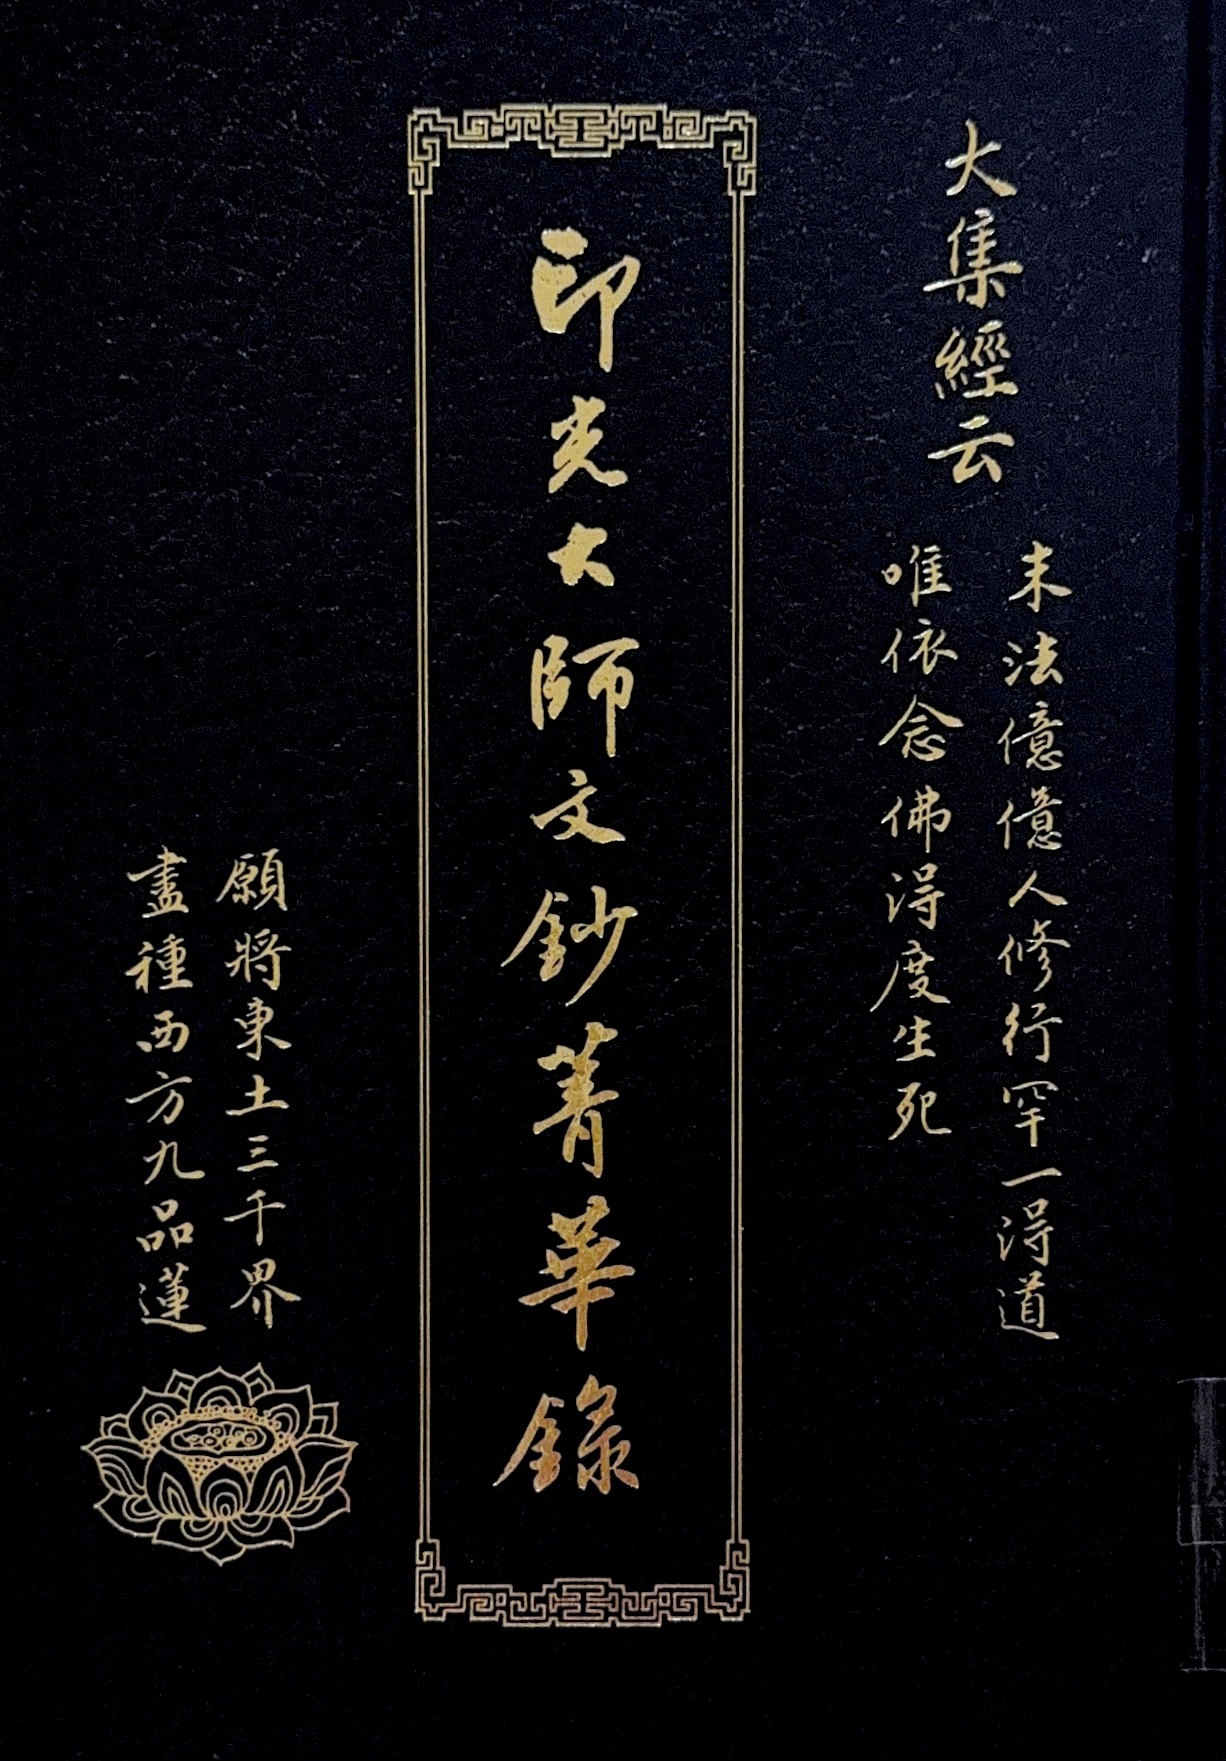 大集經云
末法億億人修行罕一得道
唯依念佛得度生死
印光大師文鈔菁華錄
願將東土三千界
盡種西方九品蓮